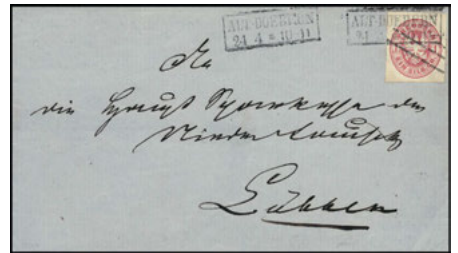 ALT-DOEBERN ALT-DOEBERN
21 4 * 10-11
An
die Haupt Sparkasse der
Nieder Lausitz
Lübben